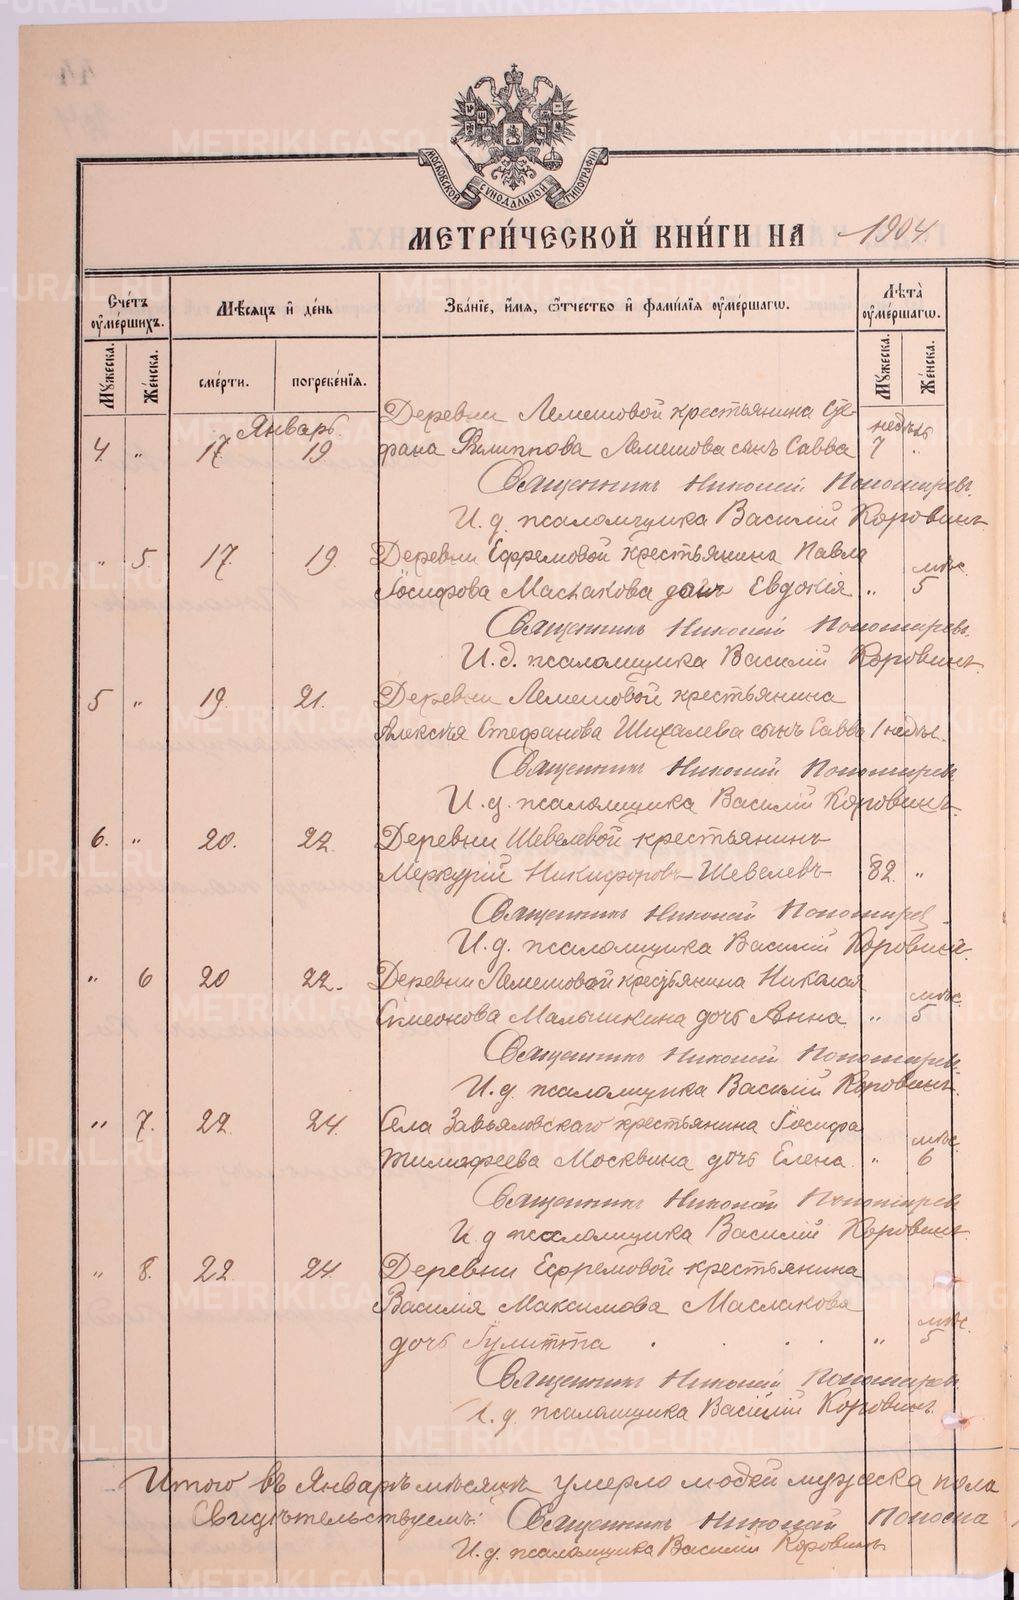 МОСКОВСКОЙ СѴНОДАЛЬНОЙ ТИПОГРАФІИ
МЕТРИ́ЧЕСКОЙ КНИ́ГИ НА 1904.
Сче́тъ ᲂу҆ме́ршихъ.
Мѣ́сяцъ и҆ де́нь
Зва́нїе, и҆́мѧ, ѻ҆́тчество и҆ фами́лїѧ ᲂу҆ме́ршагѡ.
Лѣта̀ ᲂу҆ме́ршагѡ.
Мꙋ́жеска. Же́нска. сме́рти. погребе́нїѧ. Мꙋ́жеска. Же́нска.
Январь.
Деревни Лемешовой крестьянина Сте-
4. " 17. 19. фана Филиппова Лемешова сынъ Савва 7 недѣль "
Священникъ Николай Пономаревъ.
И. д. псаломщика Василій Коровинъ.
" 5. 17. 19. Деревни Ефремовой крестьянина Павла
Іосифова Маслакова дочь Евдокія " 5 мѣс.
Священникъ Николай Пономаревъ.
И. д. псаломщика Василій Коровинъ.
5 " 19. 21. Деревни Лемешовой крестьянина
Алексѣя Стефанова Шихалева сынъ Савва 1 недѣл.
Священникъ Николай Пономарев.
И. д. псаломщика Василій Коровинъ.
6. " 20. 22. Деревни Шевелевой крестьянинъ
Меркурій Никифоровъ Шевелевъ 82. "
Священникъ Николай Пономарев
И. д. псаломщика Василій Коровинъ.
" 6 20 22. Деревни Лемешовой крестьянина Николая
Симеонова Мальчикина дочь Анна " 5 мѣс.
Священникъ Николай Пономаревъ.
И. д. псаломщика Василій Коровинъ.
" 7. 22. 24. Села Завьяловскаго крестьянина Іосифа
Тимофеева Москвина дочь Елена. " 6 мѣс.
Священникъ Николай Пономарев
И. д псаломщика Василій Коровинъ.
" 8. 22 24 Деревни Ефремовой крестьянина
Василія Максимова Маслакова
дочь Іулитта . . . . " 5 мѣс.
Священникъ Николай Пономарев
И. д. псаломщика Василій Коровинъ.
Итого въ Январѣ мѣсяцѣ умерло людей мужеска пола
Свидѣтельствуемъ: Священникъ Николай Понома
И. д. псаломщика Василій Коровинъ
METRIKI.GASO-URAL.RU